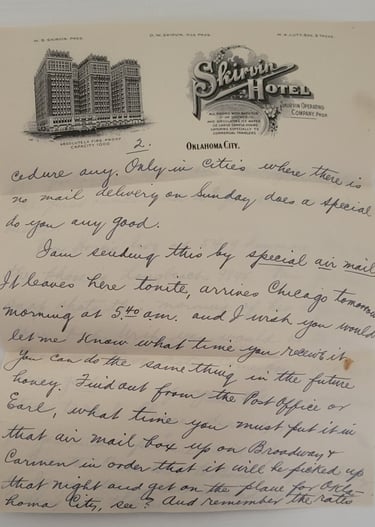 W. B. SKIRVIN, PRES.
D. W. SKIRVIN, VICE PRES.
Skirvin
HOTEL
SKIRVIN OPERATING
COMPANY, PROP.
ABSOLUTELY FIRE PROOF
CAPACITY 1000
OKLAHOMA CITY.
2.
cedure any. Only in cities where there is
no mail delivery on Sunday does a special
do you any good.
I am sending this by special air mail
It leaves here tonite, arrives Chicago tomorrow
morning at 5.40 am. and I wish you would
let me know what time you receive it
You can do the same thing in the future
honey. Find out from the Post Office or
Earl, what time you must put it in
that air mail box up on Broadway &
Carmen in order that it will be picked up
that night and get on the plane for Okla-
homa City, see? And remember the rate